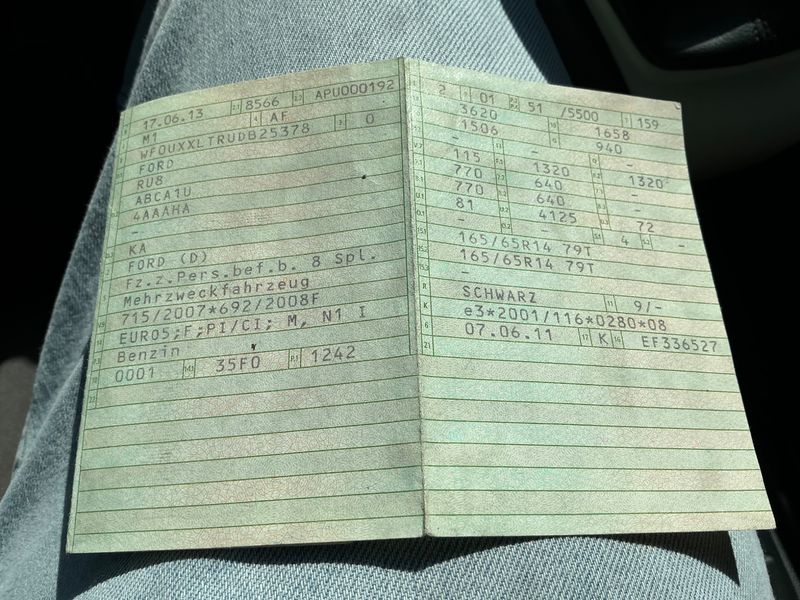 17.06.13 2.1 8566 2.2 APU000192
M1 4 AF
WF0UXXLTRUDB25378 3 0
FORD
RU8
ABCA1U
4AAAHA
-
KA
FORD (D)
Fz.z.Pers.bef.b. 8 Spl.
Mehrzweckfahrzeug
715/2007*692/2008F
EURO5;F;PI/CI; M, N1 I
Benzin
0001 14.1 35F0 P.1 1242
2 01 51 /5500 159
3620
1506 1658
- 940
115 - -
770 1320 1320
770 640 -
81 640 -
- 4125 72
165/65R14 79T 4 -
165/65R14 79T
-
SCHWARZ 11 9/-
e3*2001/116*0280*08
07.06.11 17 K 16 EF336527